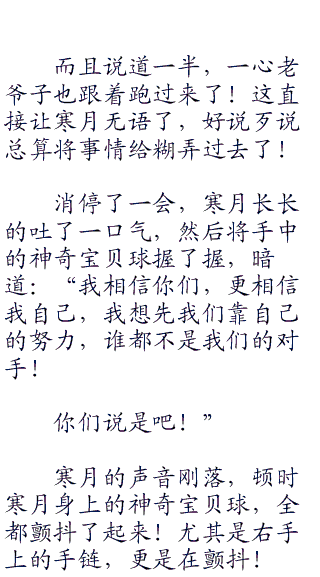 而且说道一半，一心老
爷子也跟着跑过来了！这直
接让寒月无语了，好说歹说
总算将事情给糊弄过去了！
消停了一会，寒月长长
的吐了一口气，然后将手中
的神奇宝贝球握了握，暗
道：“我相信你们，更相信
我自己，我想先我们靠自己
的努力，谁都不是我们的对
手！
你们说是吧！”
寒月的声音刚落，顿时
寒月身上的神奇宝贝球，全
都颤抖了起来！尤其是右手
上的手链，更是在颤抖！